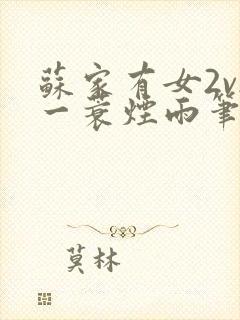 蘇家有女2v
一蓑煙雨筆
莫林